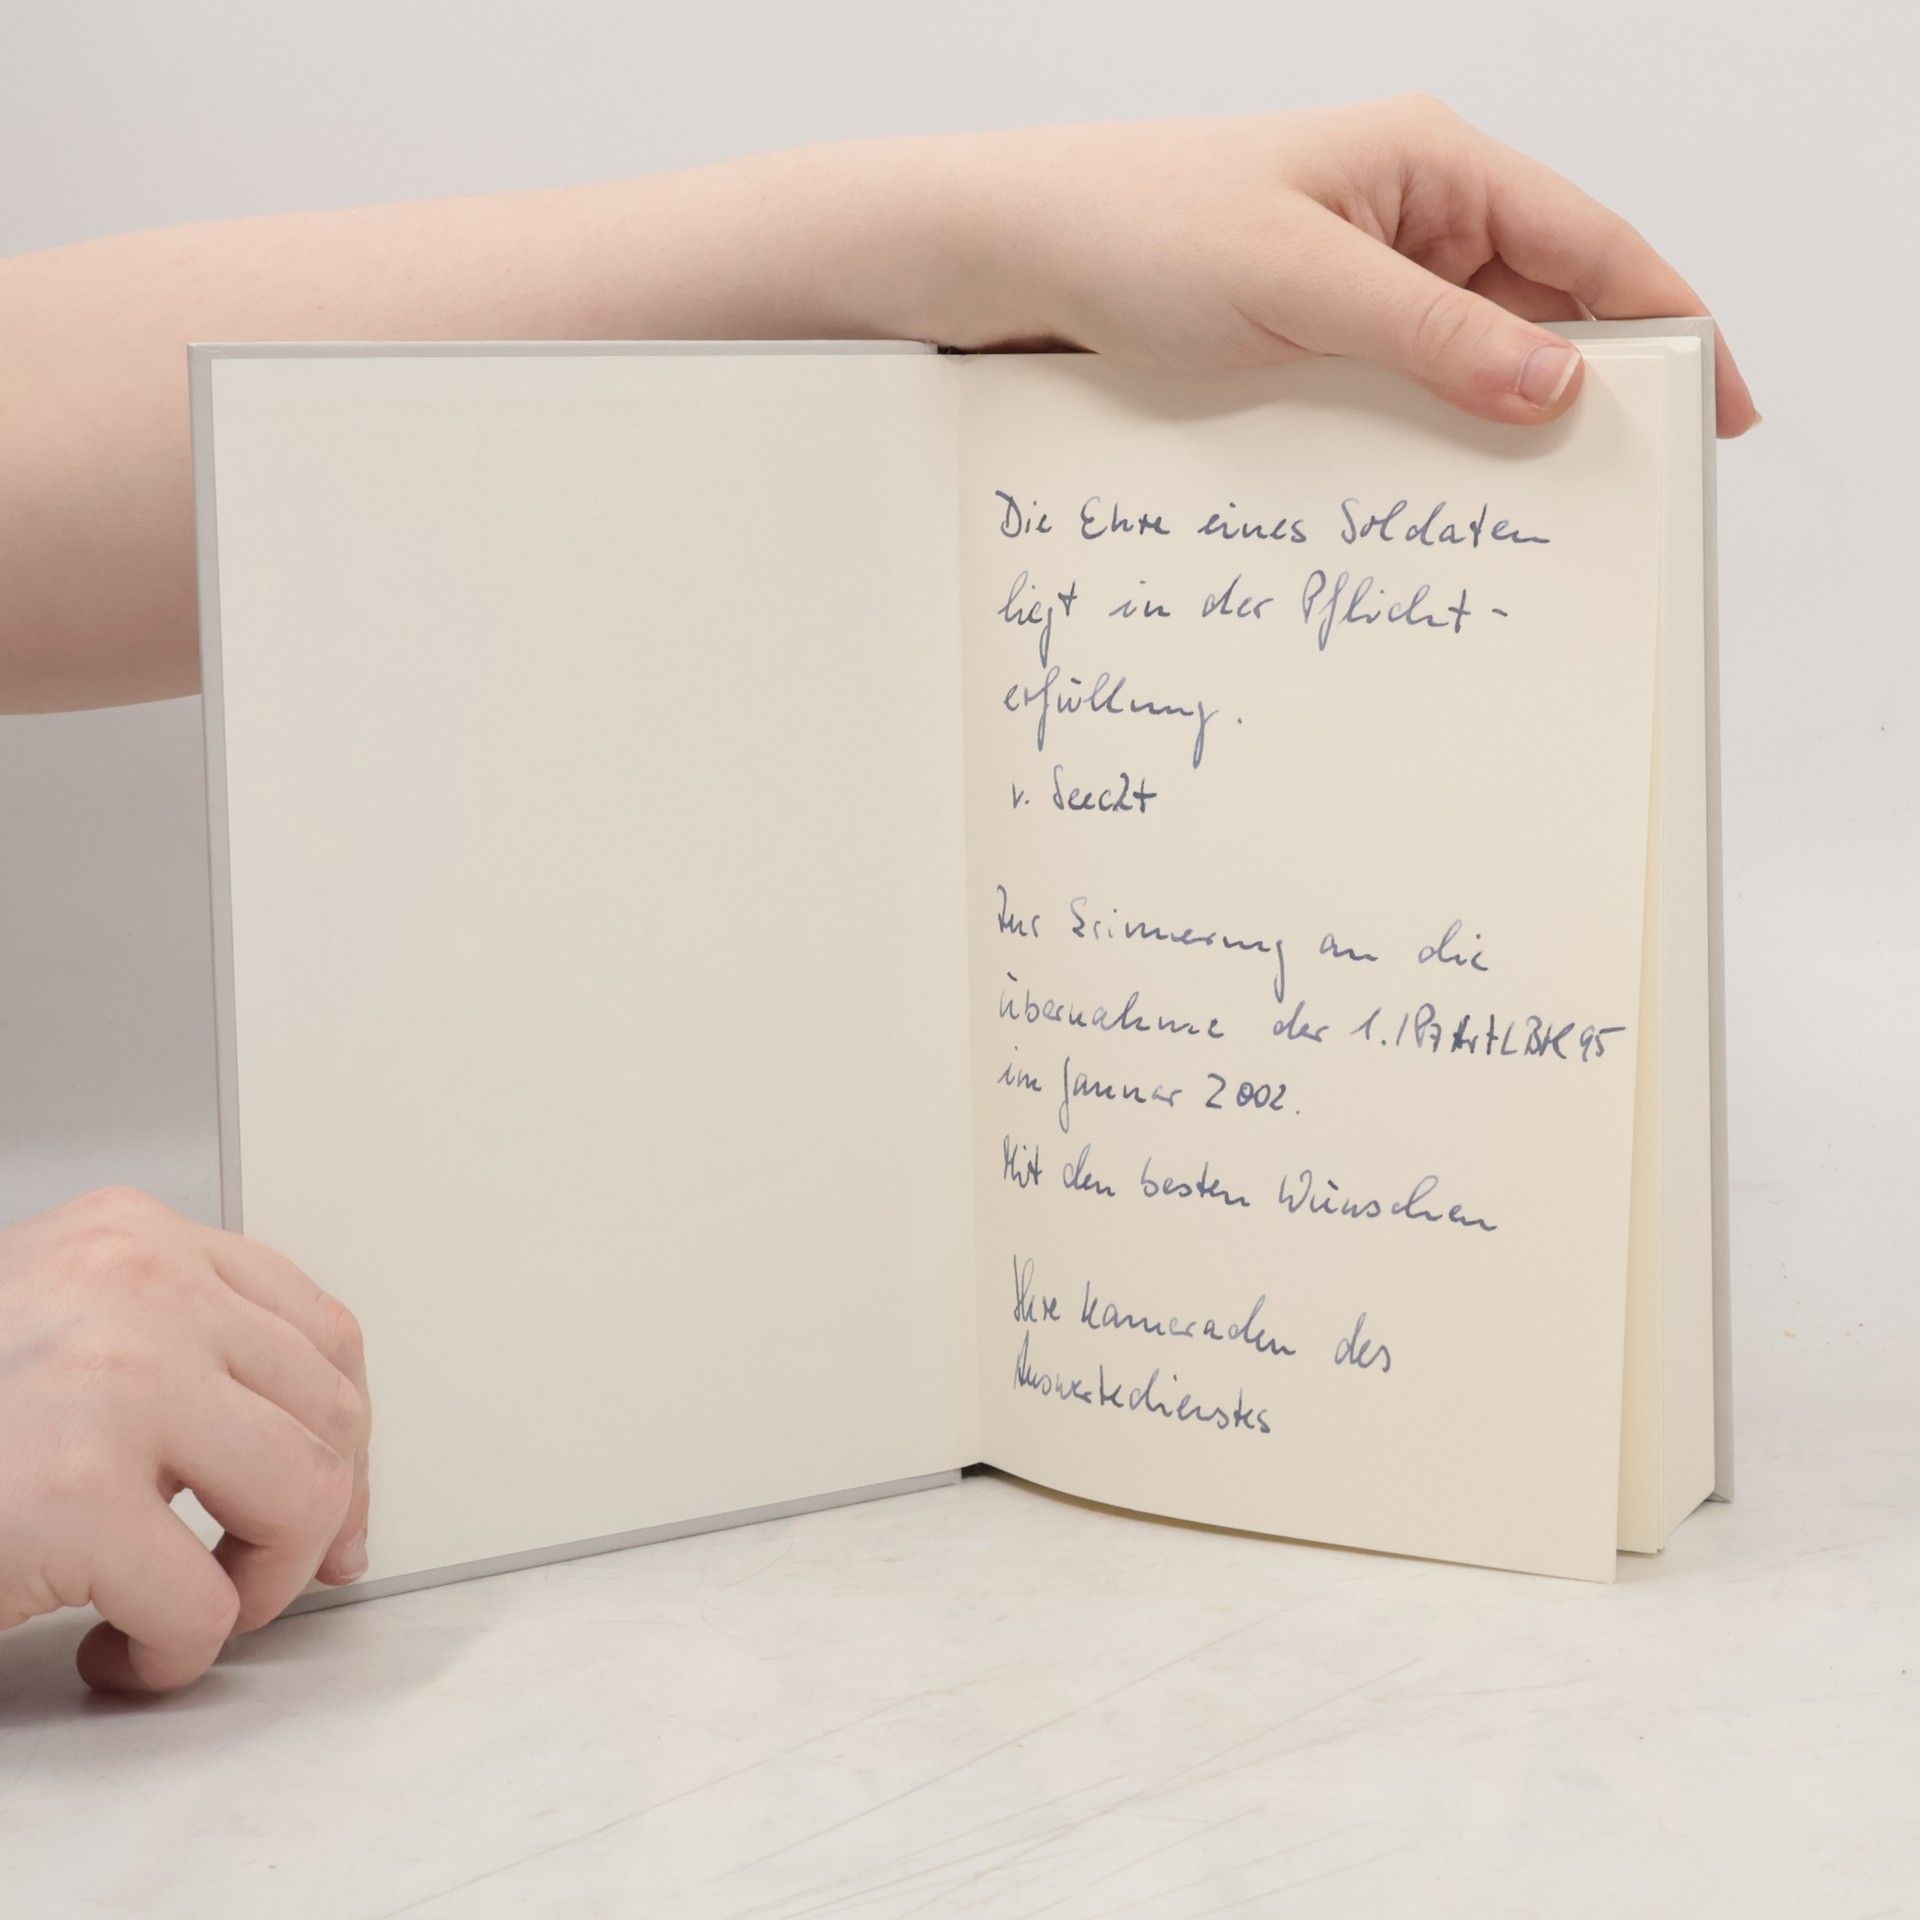 Die Ehre eines Soldaten
liegt in der Pflicht-
erfüllung.
v. Seeckt
Zur Erinnerung an die
Übernahme der 1./PzArtLBtl 95
im Januar 2002.
Mit den besten Wünschen
Ihre Kameraden des
Auswertedienstes